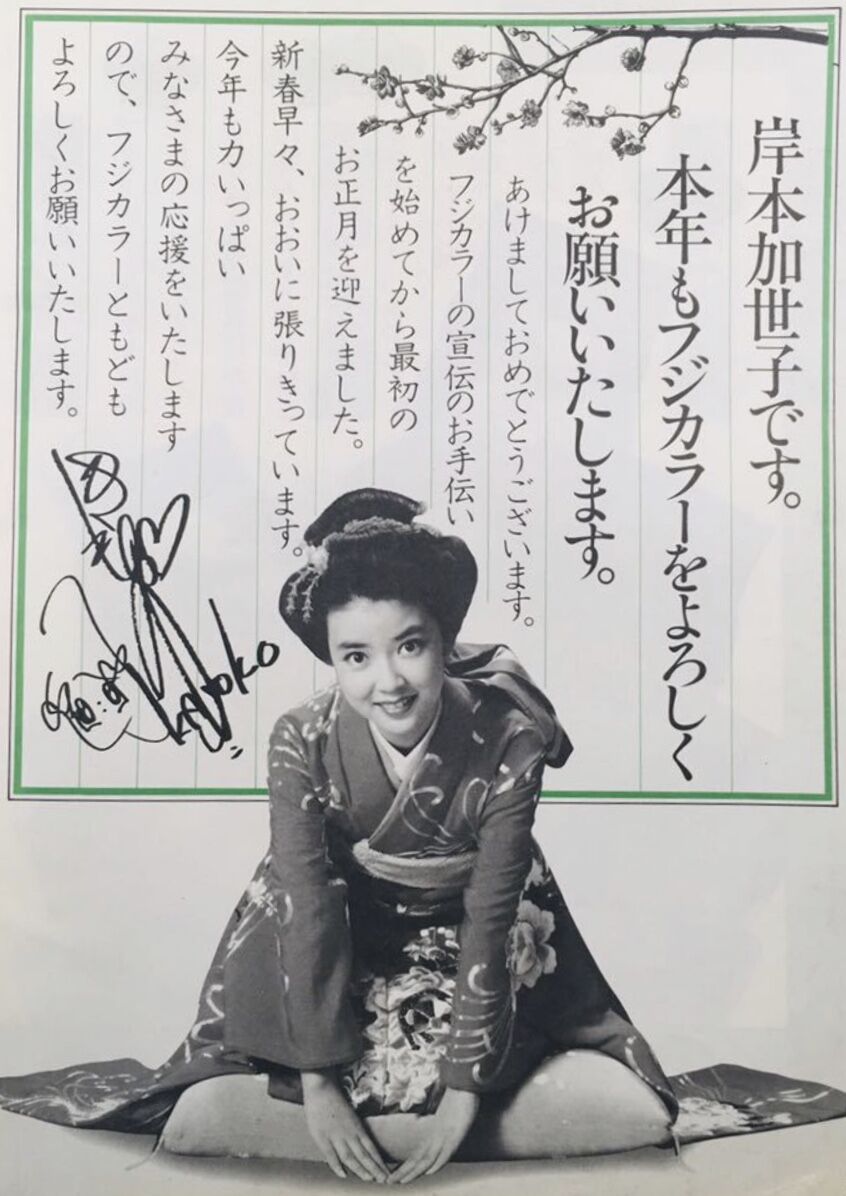 岸本加世子です。
本年もフジカラーをよろしく
お願いいたします。
あけましておめでとうございます。
フジカラーの宣伝のお手伝い
を始めてから最初の
お正月を迎えました。
新春早々、おおいに張りきっています。
今年も力いっぱい
みなさまの応援をいたします
ので、フジカラーともども
よろしくお願いいたします。